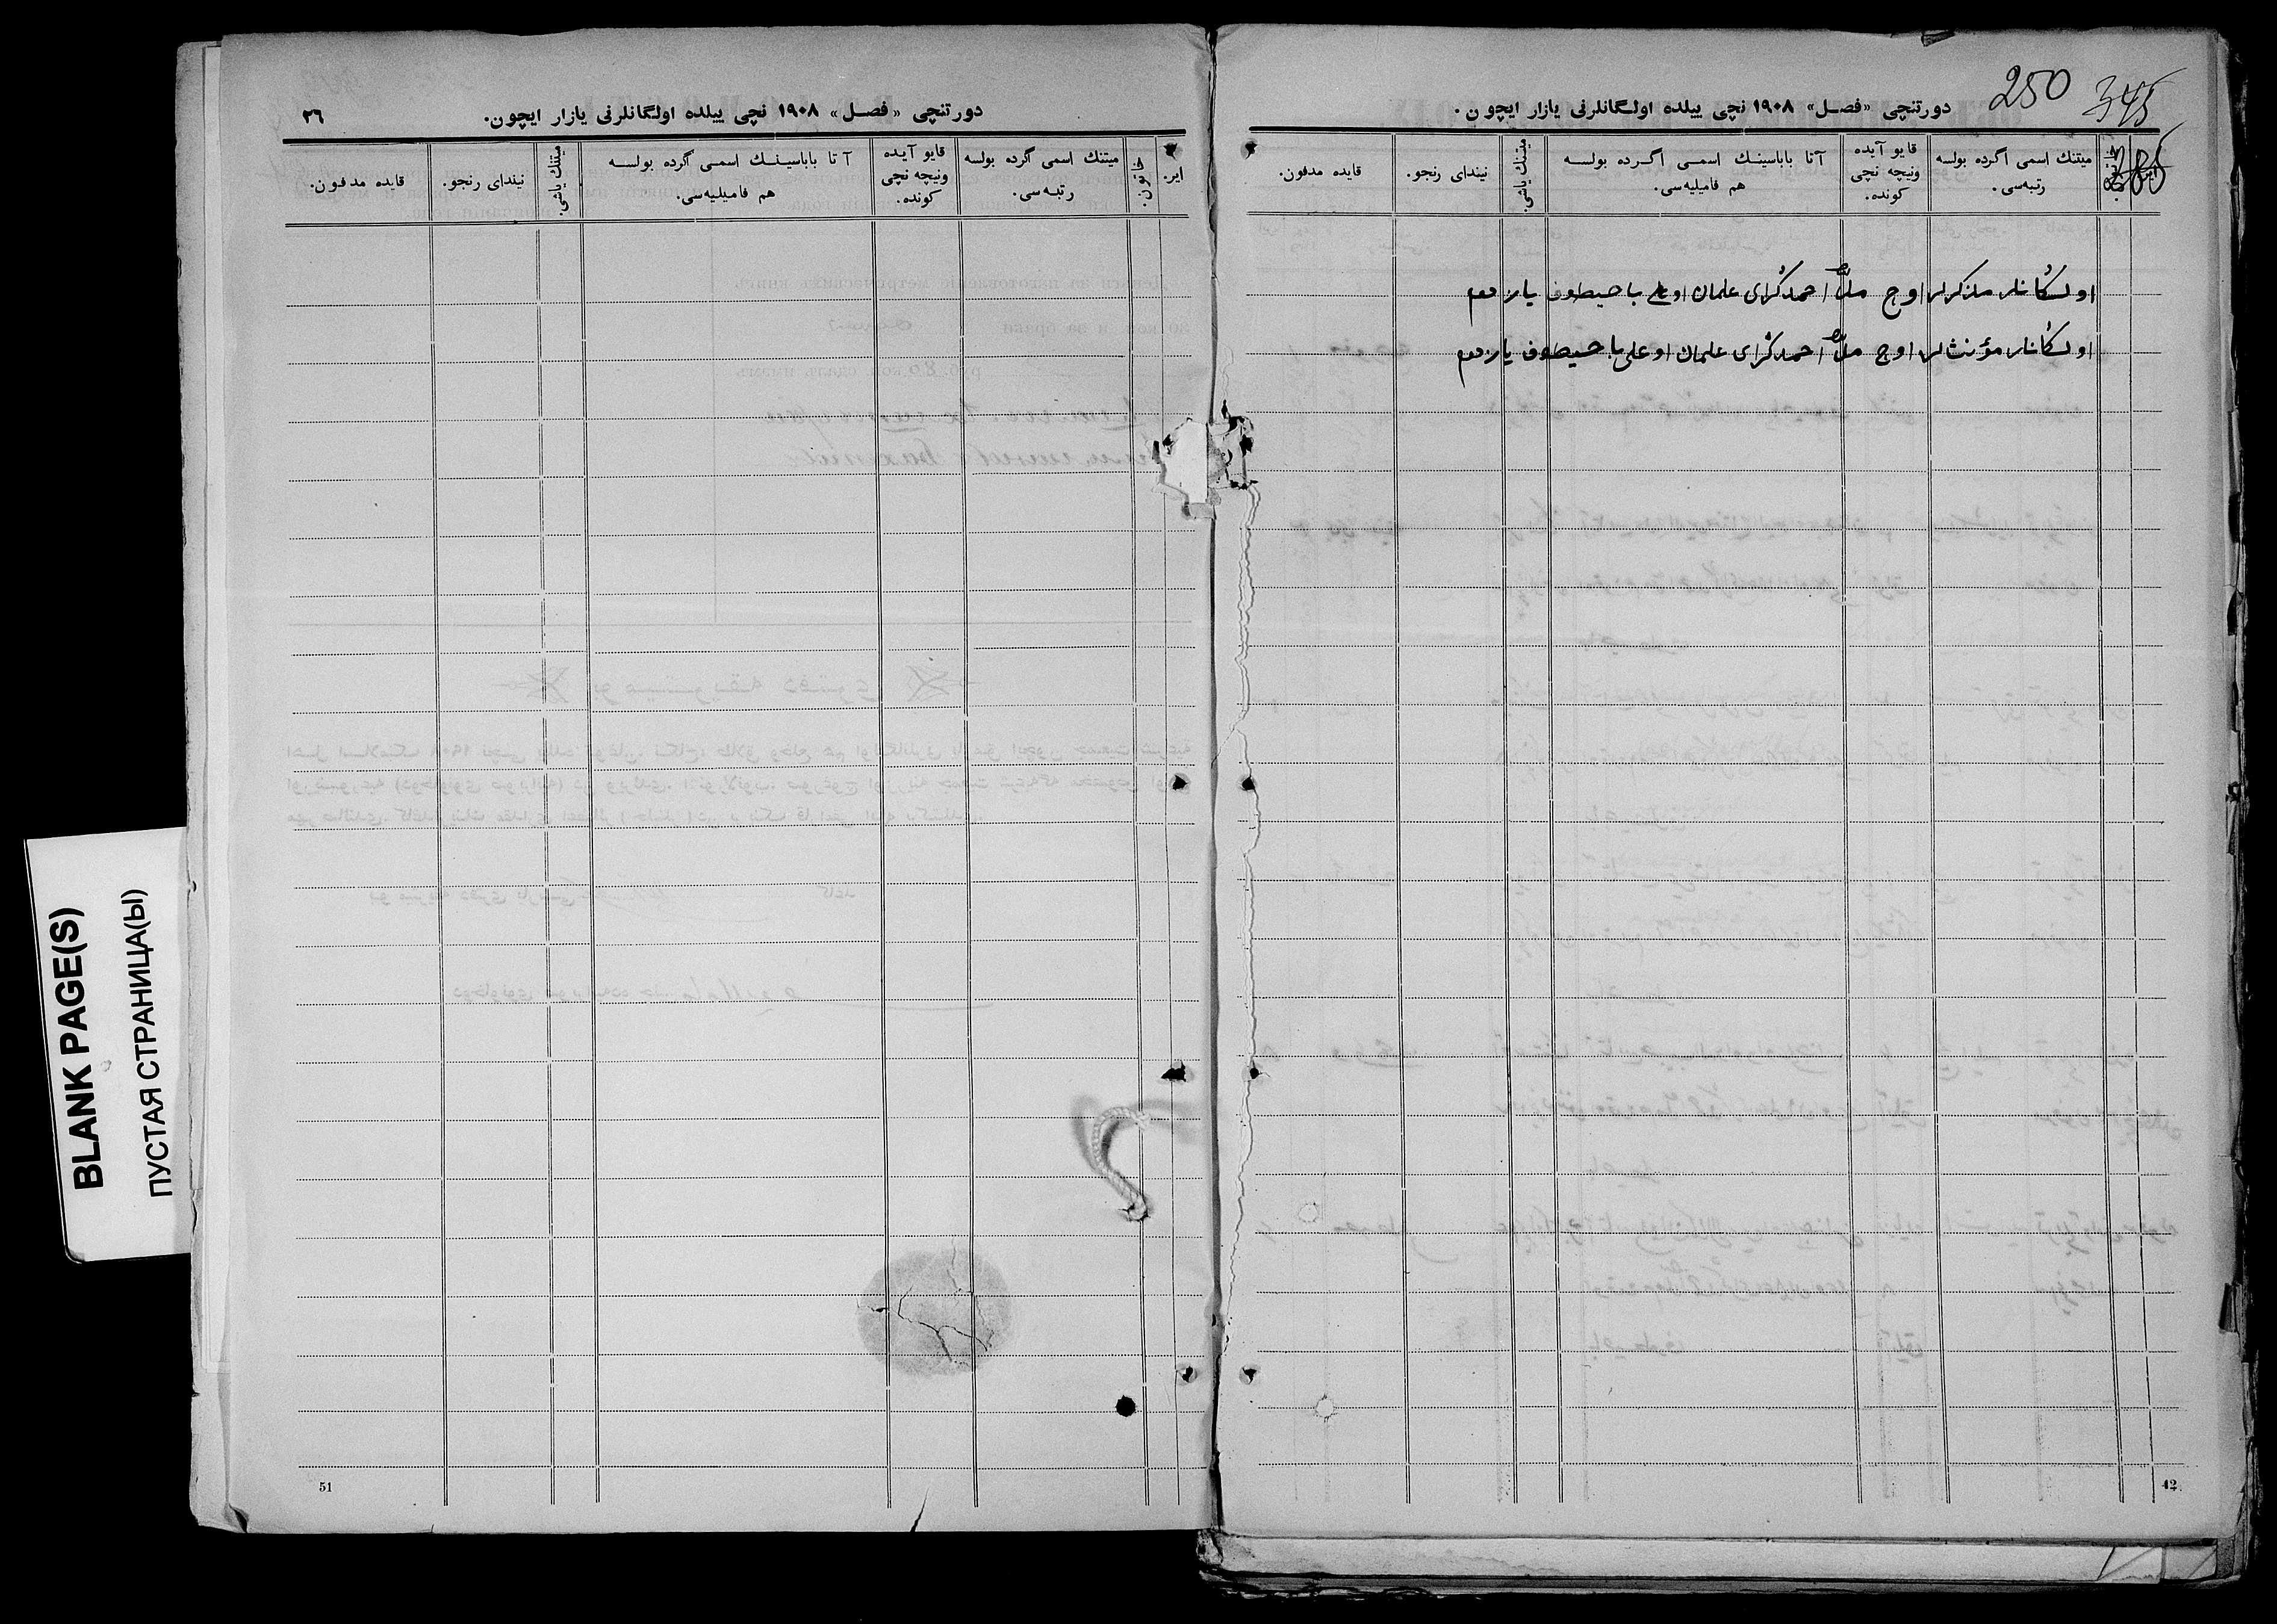 250 345
385
دورتنچی «فصل» ۱۹۰۸ نچی ییلده اولگانلرنی یازار ایچون.
ایر.
خاتون.
میتنك اسمی اگرده بولسه
رتبه‌سی.
قایو آیده
ونیچه نچی
كونده.
آتا باباسینك اسمی اگرده بولسه
هم فامیلیه‌سی.
میتنك یاشی.
نیندای رنجو.
قایده مدفون.
اولگانلر مذكرلر اوچ ملا احمدگرای علمان اوغلی باحیطوف یازدم
اولگانلر مؤنثلر اوچ ملا احمدگرای علمان اوغلی باحیطوف یازدم
12
دورتنچی «فصل» ۱۹۰۸ نچی ییلده اولگانلرنی یازار ایچون.
۲٦
ایر.
خاتون.
میتنك اسمی اگرده بولسه
رتبه‌سی.
قایو آیده
ونیچه نچی
كونده.
آتا باباسینك اسمی اگرده بولسه
هم فامیلیه‌سی.
میتنك یاشی.
نیندای رنجو.
قایده مدفون.
51
BLANK PAGE(S)
ПУСТАЯ СТРАНИЦА(Ы)